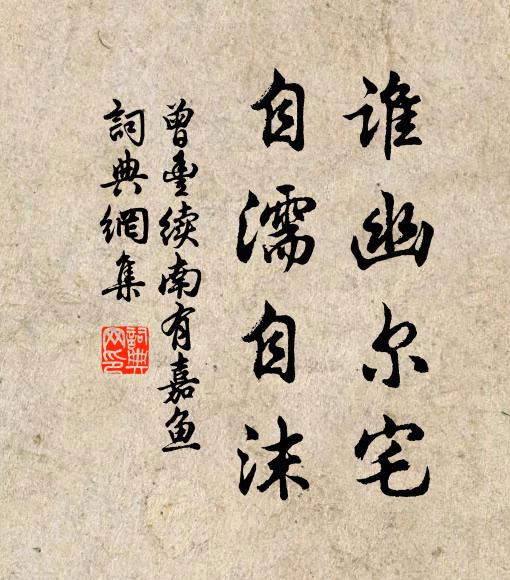 谁幽尔宅
自濡自沫
曾丰续南有嘉鱼
詞典網集
詞典网印